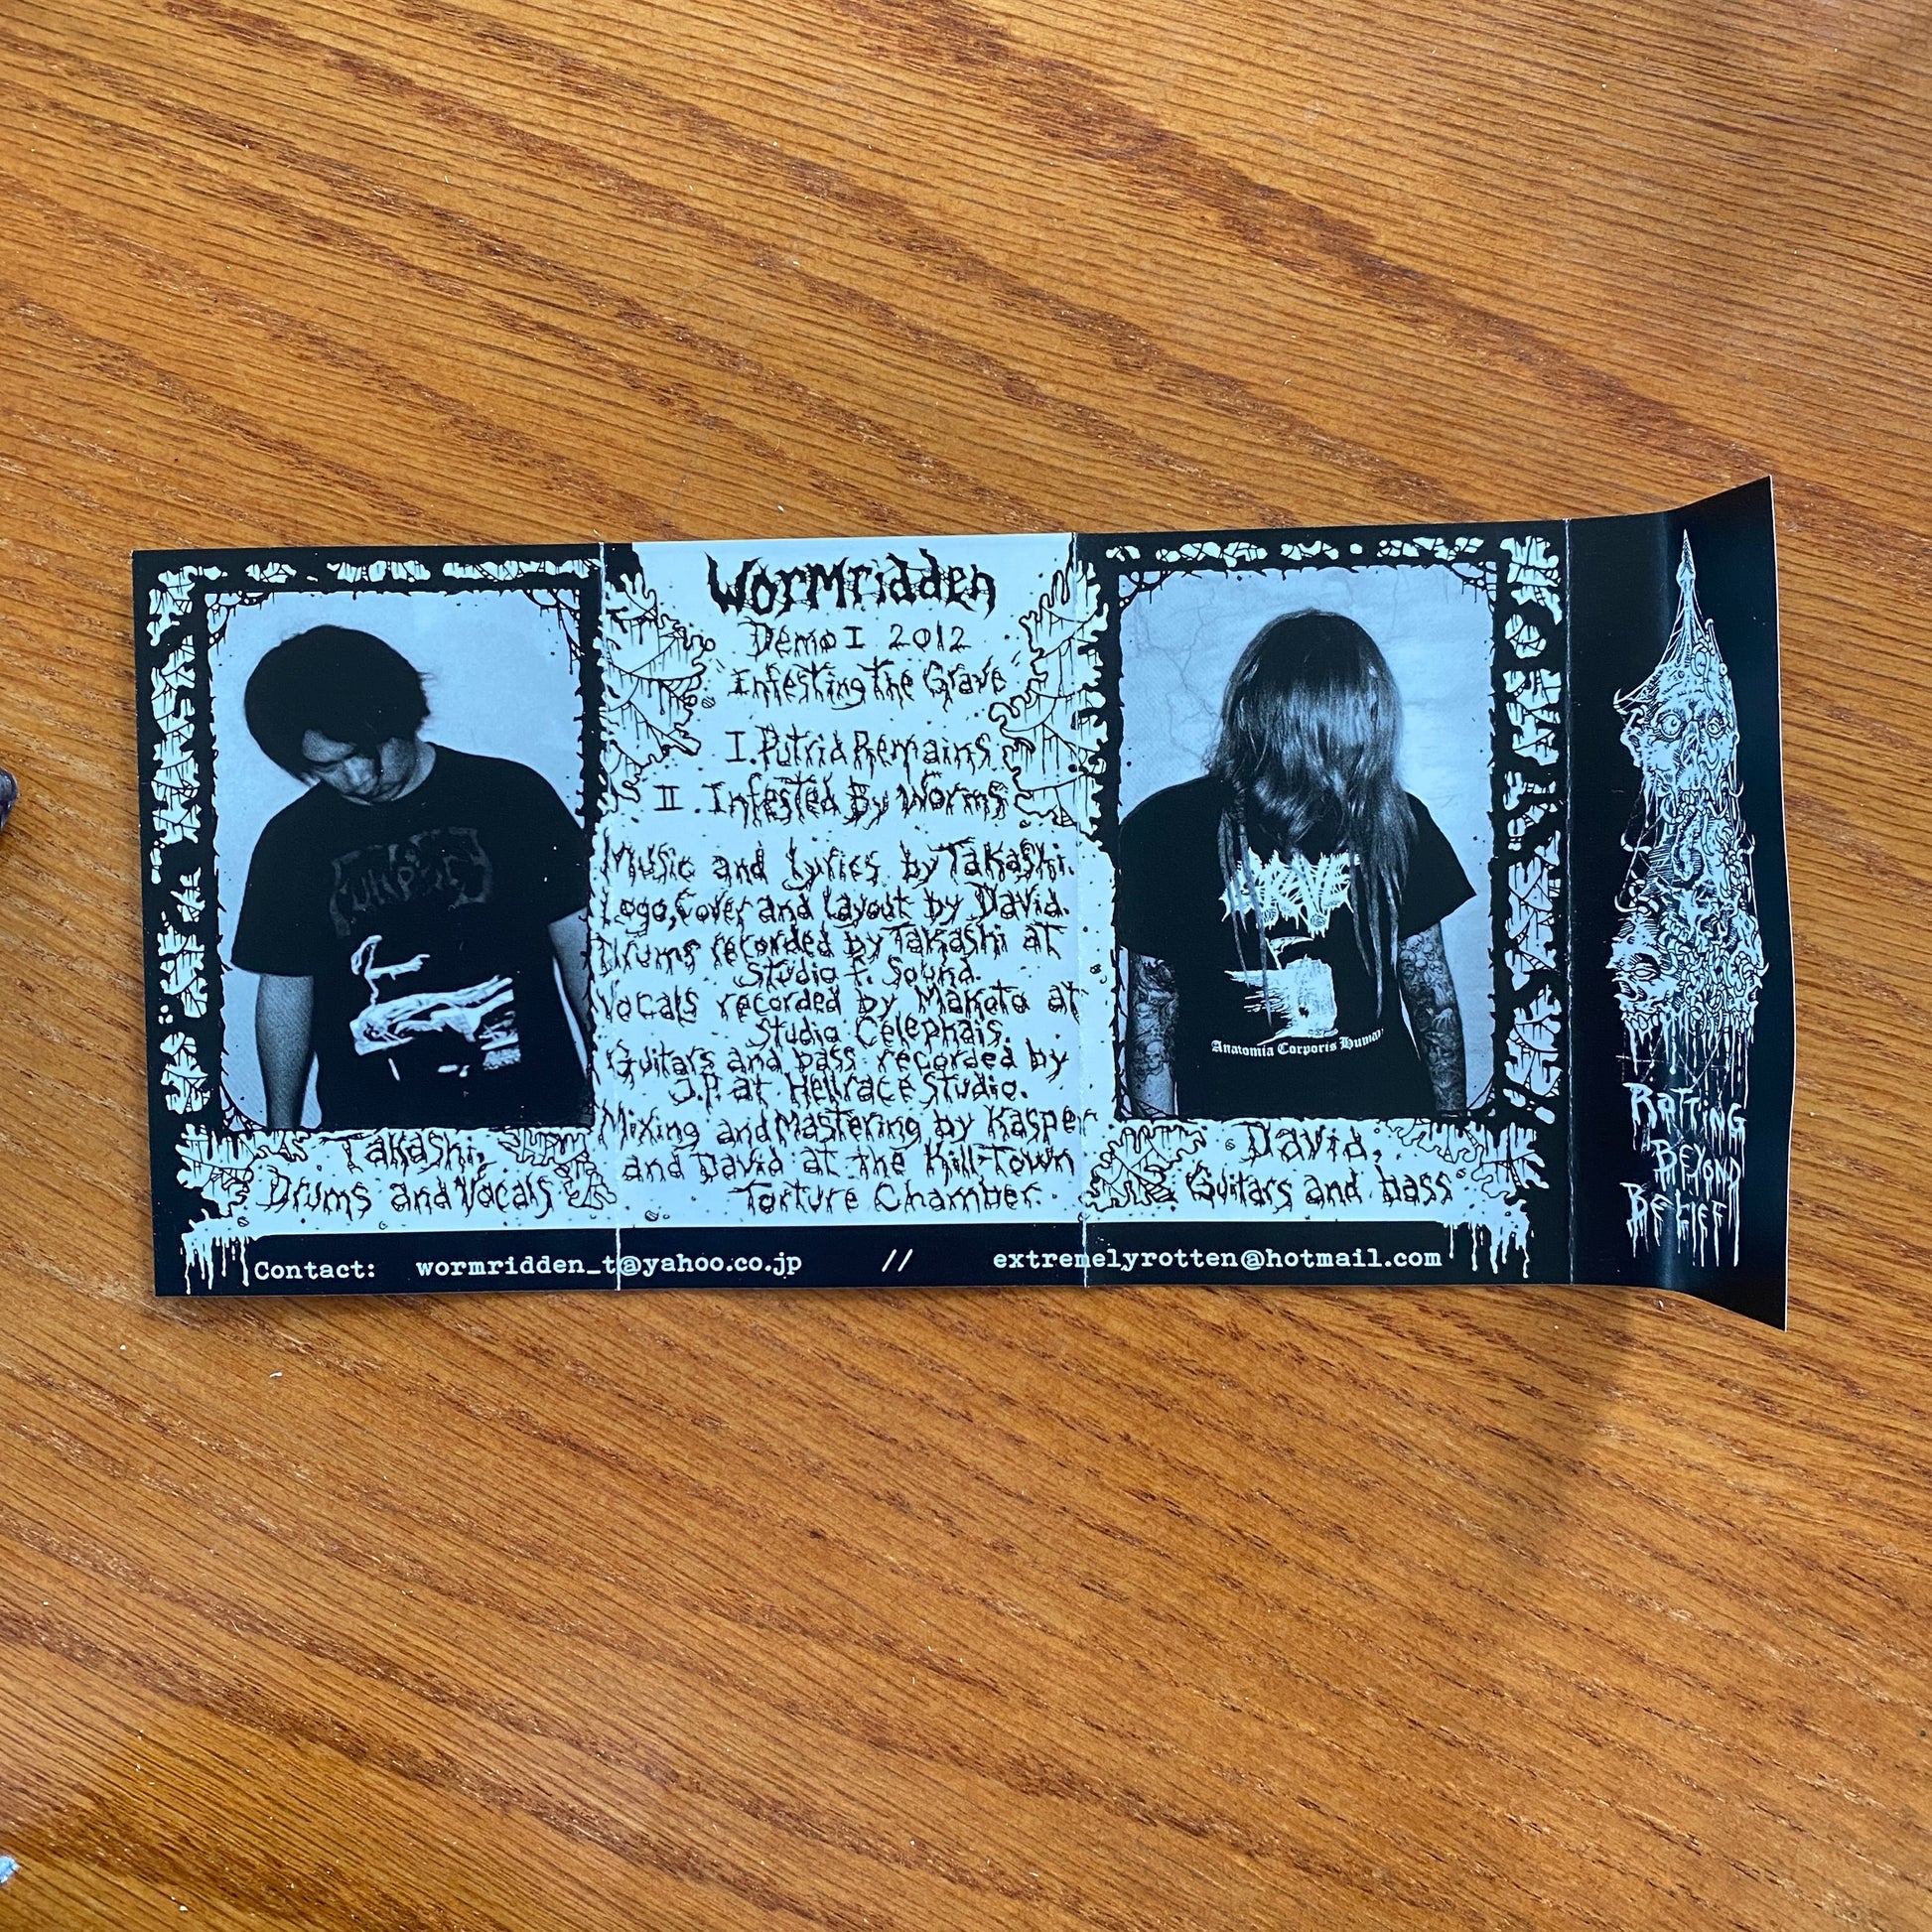 Wormridden
Demo I 2012
"Infesting The Grave"
I. Putrid Remains
II. Infested By Worms
Music and Lyrics by Takashi.
Logo, Cover and Layout by David.
Drums recorded by Takashi at
Studio f. Sound.
Vocals recorded by Makoto at
Studio Celephais.
Guitars and bass recorded by
J.P. at Hellrace Studio.
Mixing and Mastering by Kasper
and David at the Kill-Town
Torture Chamber.
Takashi,
Drums and Vocals
Anatomia Corporis Humani
David,
Guitars and bass
Contact: wormridden_t@yahoo.co.jp // extremelyrotten@hotmail.com
Rotting
Beyond
Belief